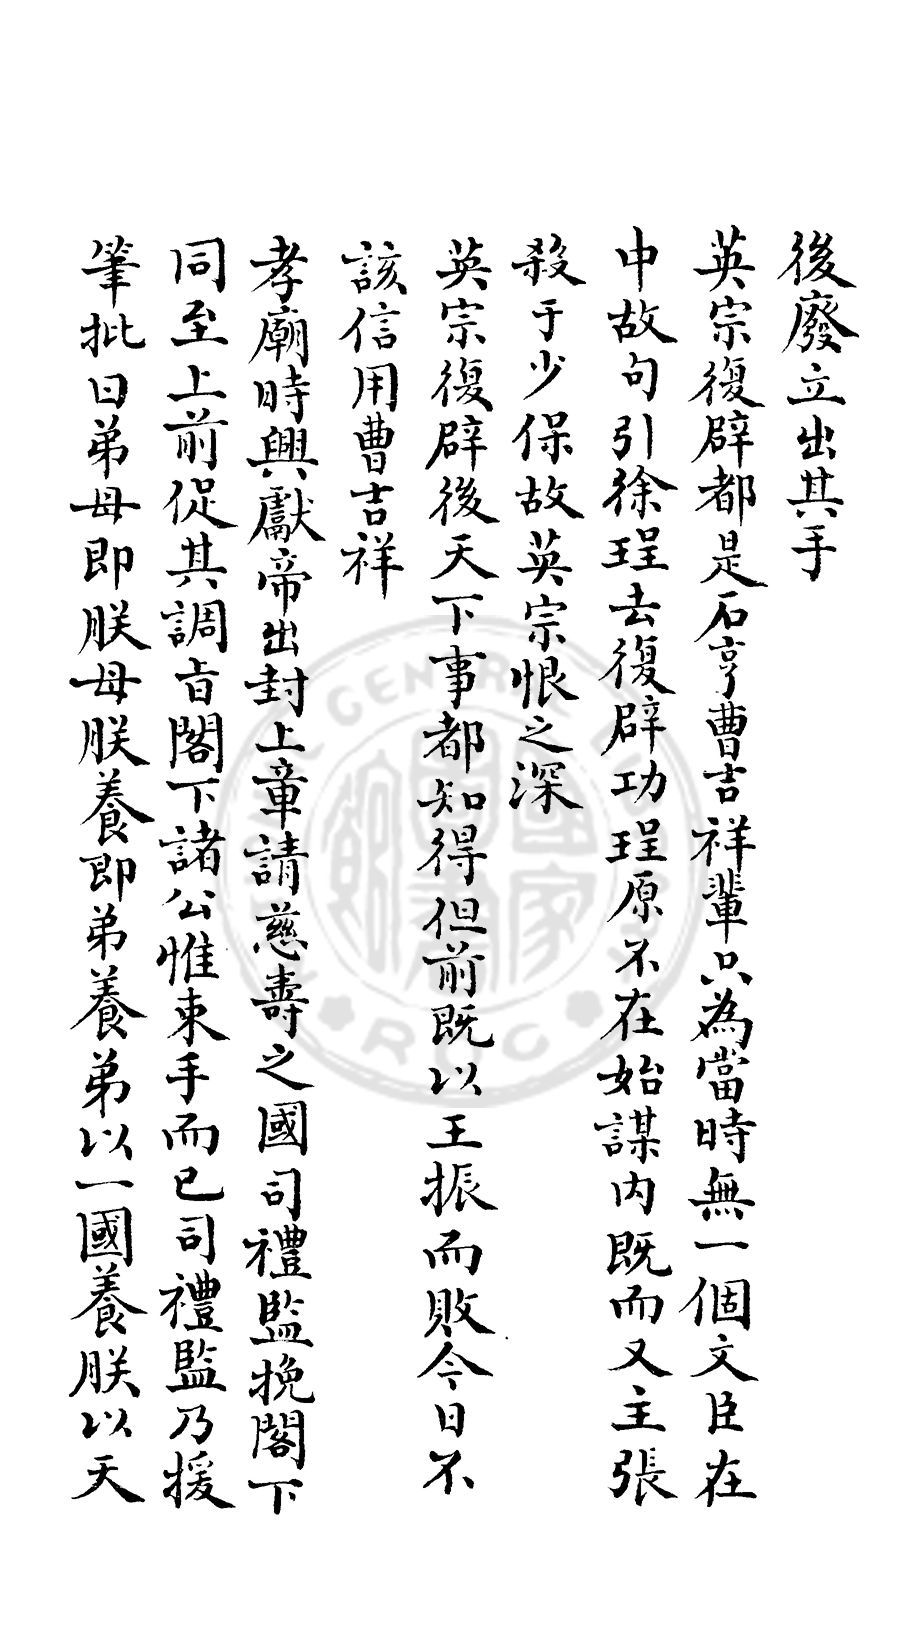 後廢立出其手
英宗復辟都是石亨曹吉祥輩只為當時無一個文臣在
中故句引徐珵去復辟功珵原不在始謀内既而又主張
殺于少保故英宗恨之深
英宗復辟後天下事都知得但前既以王振而敗今日不
該信用曹吉祥
孝廟時興獻帝出封上章請慈壽之國司禮監挽閣下
同至上前促其調旨閣下諸公惟束手而已司禮監乃援
筆批曰弟母即朕母朕養即弟養弟以一國養朕以天
CENTRAL
ROC
國家圖書館